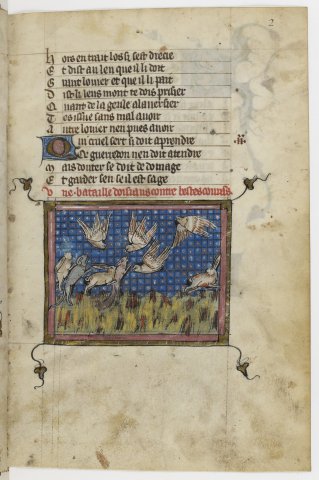 2
Hors en trait los si sest drecie
Et dist au leu que il li doit
Grant loier et que il li pait
Dist li leus mont te dois prisier
Quant de la geule a lauersier
Tes issue sans mal auoir
Autre loier nen pues auoir
Qui cruel sert si doit aprendre
Que guerredon nen doit atendre
Mais douter se doit de domage
Et garder sen se il est sage
Vne bataille doisiaus contre bestes